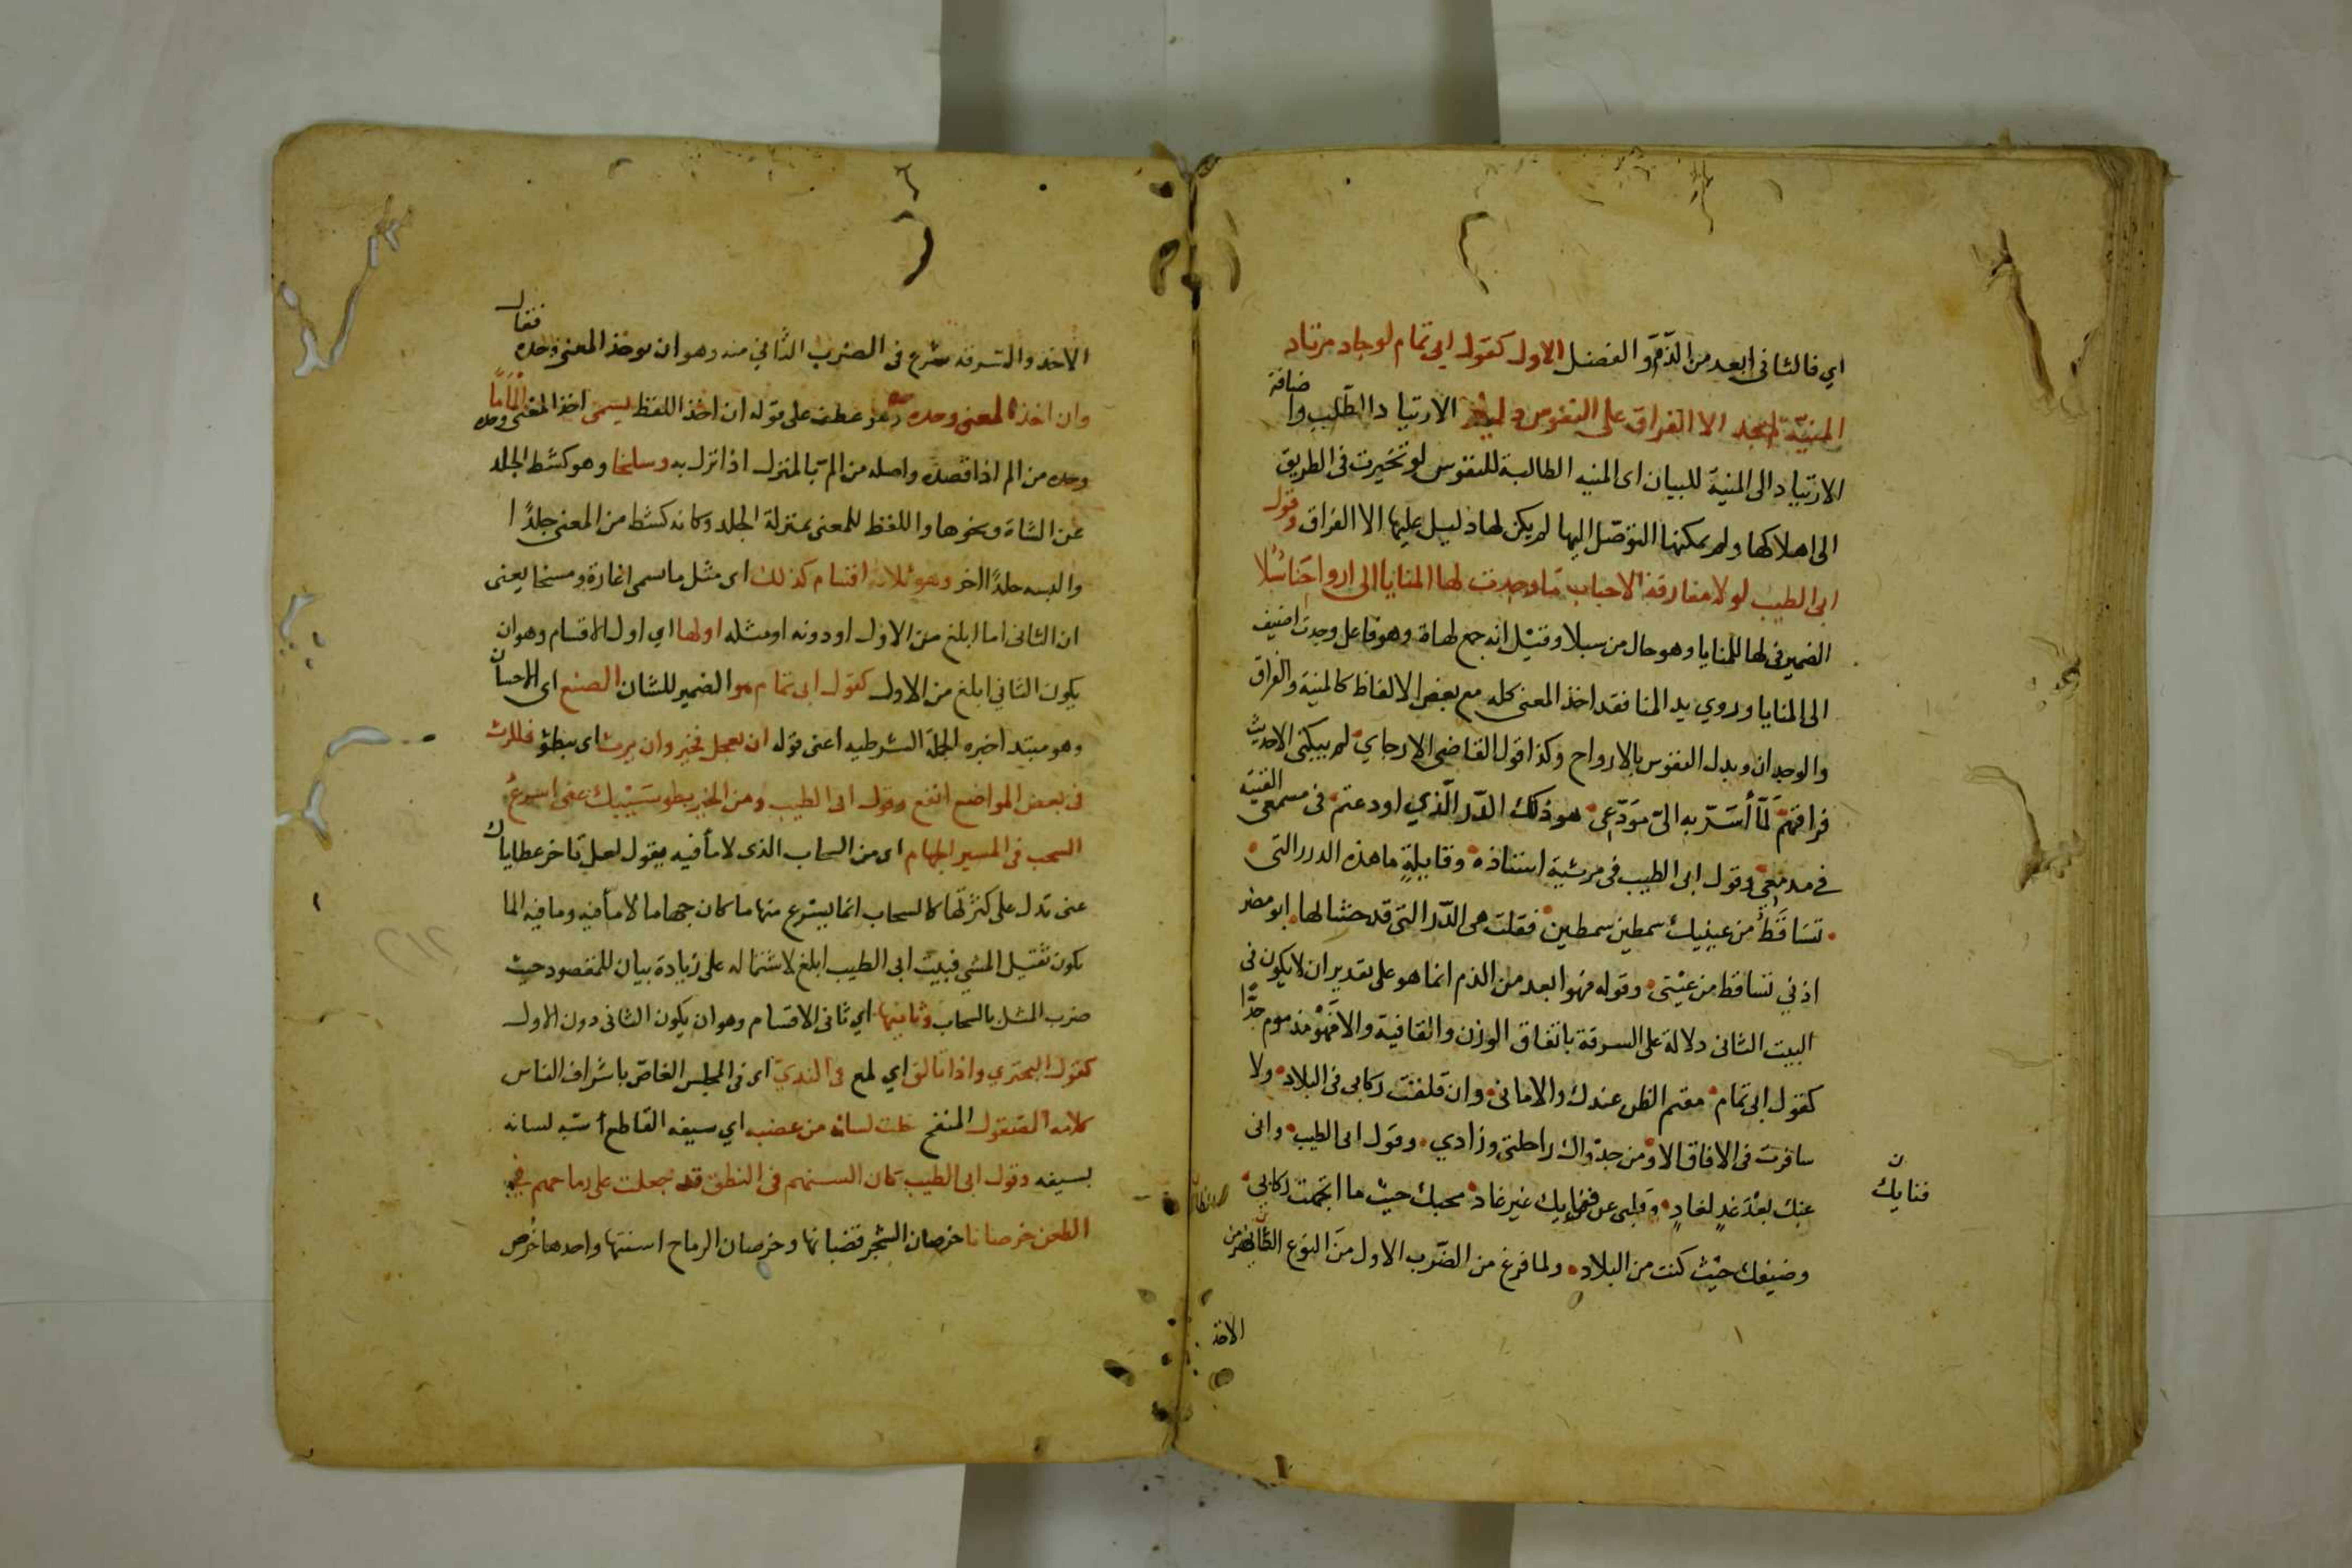 اي فالثاني ابعد من الذم والفضل الاول كقول ابي تمام لو حاد مرتاد
المنية لم يجد الا الفراق على النفوس دليلا الارتياد الطلب واضافة
الارتياد الى المنية للبيان اى المنيه الطالبة للنفوس لو تحيرت في الطريق
الى اهلاكها ولم يمكنها التوصل اليها لم يكن لها دليل عليها الا الفراق وقول
ابى الطيب لولا مفارقة الاحباب ما وجدت لها المنايا الى ارواحنا سُبُلا
الضمير فى لها للمنايا وهو حال من سبلا وقيل انه جمع لهاة وهو فاعل وجدت اضيف
الى المنايا وروي يد المنا فقد اخذ المعنى كله مع بعض الالفاظ كالمنية والفراق
والوجدان وبدل النفوس بالارواح وكذا قول القاضي الارجاني لم يبكنى الا حديث
فراقهم لمّا أسَرّ به الىّ مودّعى هو ذلك الدّر الّذي اودعتم فى مسمعى القيته
في مدمعي وقول ابى الطيب فى مرثية استاذه وقايلةٍ ما هذه الدرر التى
تسَاقَطُ من عينيك سمطين سمطين فقلت هى الدّرر التى قد حشا لها ابو مضر
اذني تساقط من عينى وقوله فهو ابعد من الذم انما هو على تقدير ان لا يكون فى
البيت الثانى دلالة على السرقة باتفاق الوزن والقافية والا فهو مذموم جدًّا
كقول ابى تمام مقيم الظن عندك والامانى وان قلقت ركابى فى البلاد ولا
سافرت فى الافاق الا ومن جدواك راحلتى وزادي وقول ابى الطيب وانى
عنك بعْدَ غدٍ لغادٍ وقلبى عن فنايك غير غاد محبك حيث ما اتجهت ركابي
ن
فنايك
وضيفك حيْث كنت من البلاد ولما فرغ من الضّرب الاول منَ النوع الظاهر من
الاخذ
الاخذ والسرقة شرع فى الضرب الثاني منه وهو ان يوخذ المعنى وحده فقال
وان اخذ المعنى وحده وهو عطف على قوله ان اخذ اللفظ يسمى اخذ المعنى وحده اِلْمَامًا
وحده من الم اذا قصده واصله من المّ بالمنزل اذا نزل به وسلخا وهو كشط الجلد
عن الشاة ونحوها واللفظ للمعنى بمنزلة الجلد وكانه كشط من المعنى جلدًا
والبسه جلدًا اخر وهو ثلاثه اقسام كذلك اى مثل ما سمى اغارة ومسخا يعنى
ان الثانى اما ابلغ من الاول او دونه او مثله اولها اي اول الاقسام وهو ان
يكون الثاني ابلغ من الاول كقول ابى تمام هو الضمير للشان الصنع اى الاحسان
وهو مبتدا خبره الجملة الشرطيه اعنى قوله ان يعجل فخير وان يرث اى يبطؤ فللريث
فى بعض المواضع انفع وقول ابى الطيب ومن الخير بطو سَيْبك عنى اسرعُ
السحب فى المسير الجهام اى من السحاب الذى لا مأ فيه يقول لعل تاخر عطاياك
عنى تدل على كثرتها كالسحاب انما يسرع منها ما كان جهاما لا مأ فيه وما فيه الما
يكون ثقيل المشي فبيت ابى الطيب ابلغ لاشتماله على زيادة بيان للمقصود حيث
ضرب المثل بالسحاب وثانيها اي ثانى الاقسام وهو ان يكون الثانى دون الاول
كقول البحتري واذا تالق اي لمع فى النديّ اى فى المجلس الغاصّ باشراف الناس
كلامه المصقول المنقح خلت لسانه من عضبه اي سيفه القاطع أشبه لسانه
بسيفه وقول ابى الطيب كان السنهم فى النطق قد جعلت على رماحهم فى
الطعن خرصانا خرصان الشجر قضبانها وخرصان الرماح اسنتها واحدها خُرص